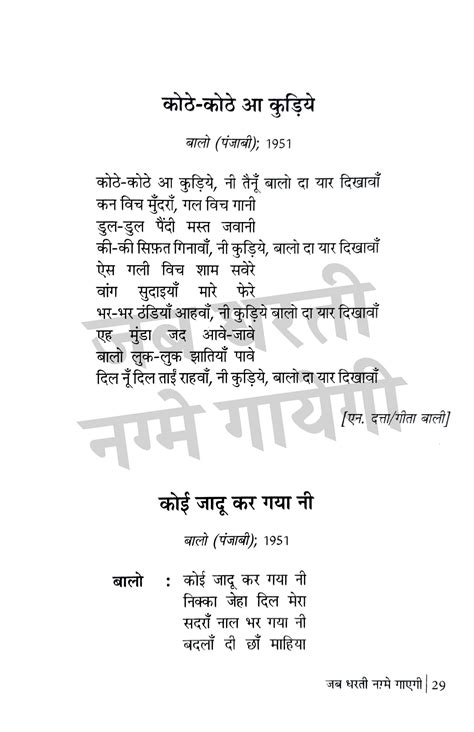 कोठे-कोठे आ कुड़िये
बालो (पंजाबी); 1951
कोठे-कोठे आ कुड़िये, नी तैनूँ बालो दा यार दिखावाँ
कन विच मुँदराँ, गल विच गानी
डुल-डुल पैंदी मस्त जवानी
की-की सिफ़त गिनावाँ, नी कुड़िये, बालो दा यार दिखावाँ
ऐस गली विच शाम सवेरे
वांग सुदाइयाँ मारे फेरे
भर-भर ठंडियाँ आहवाँ, नी कुड़िये बालो दा यार दिखावाँ
एह मुंडा जद आवे-जावे
बालो लुक-लुक झातियाँ पावे
दिल नूँ दिल ताईं राहवाँ, नी कुड़िये, बालो दा यार दिखावाँ
जब धरती
नग्मे गायेगी
[एन. दत्ता/गीता बाली]
कोई जादू कर गया नी
बालो (पंजाबी); 1951
बालो : कोई जादू कर गया नी
निक्का जेहा दिल मेरा
सदराँ नाल भर गया नी
बदलाँ दी छाँ माहिया
जब धरती नग़्मे गाएगी | 29